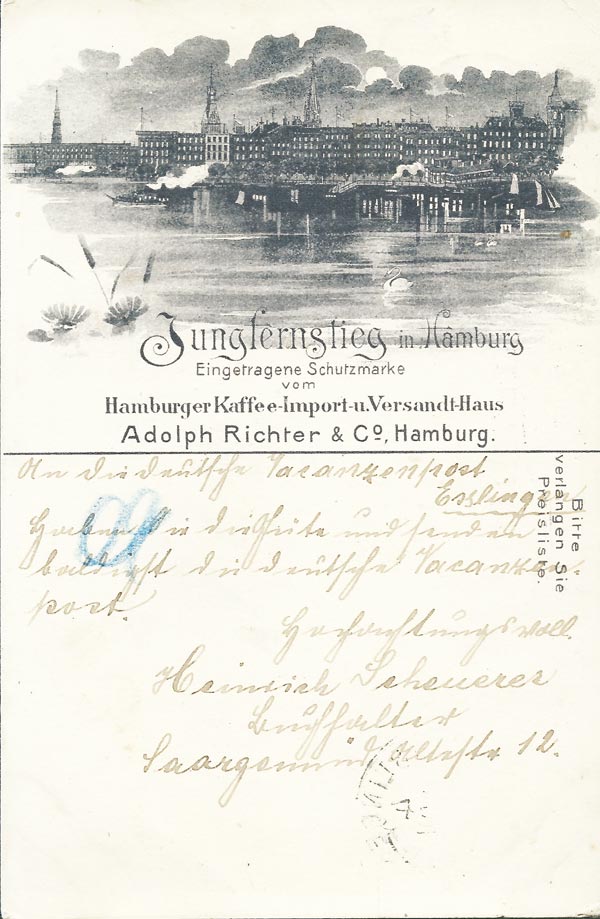 Jungfernstieg in Hamburg
Eingetragene Schutzmarke
vom
Hamburger Kaffee-Import-u.Versandt-Haus
Adolph Richter & Cº, Hamburg.
Bitte
verlangen Sie
Preisliste.
An die deutsche Vacanzenpost
Esslingen
Haben Sie die Güte und senden
baldigst die deutsche Vacanzen-
post.
Hochachtungsvoll.
Heinrich Scheuerer
Buchhalter
Saargemünd Altestr 12.